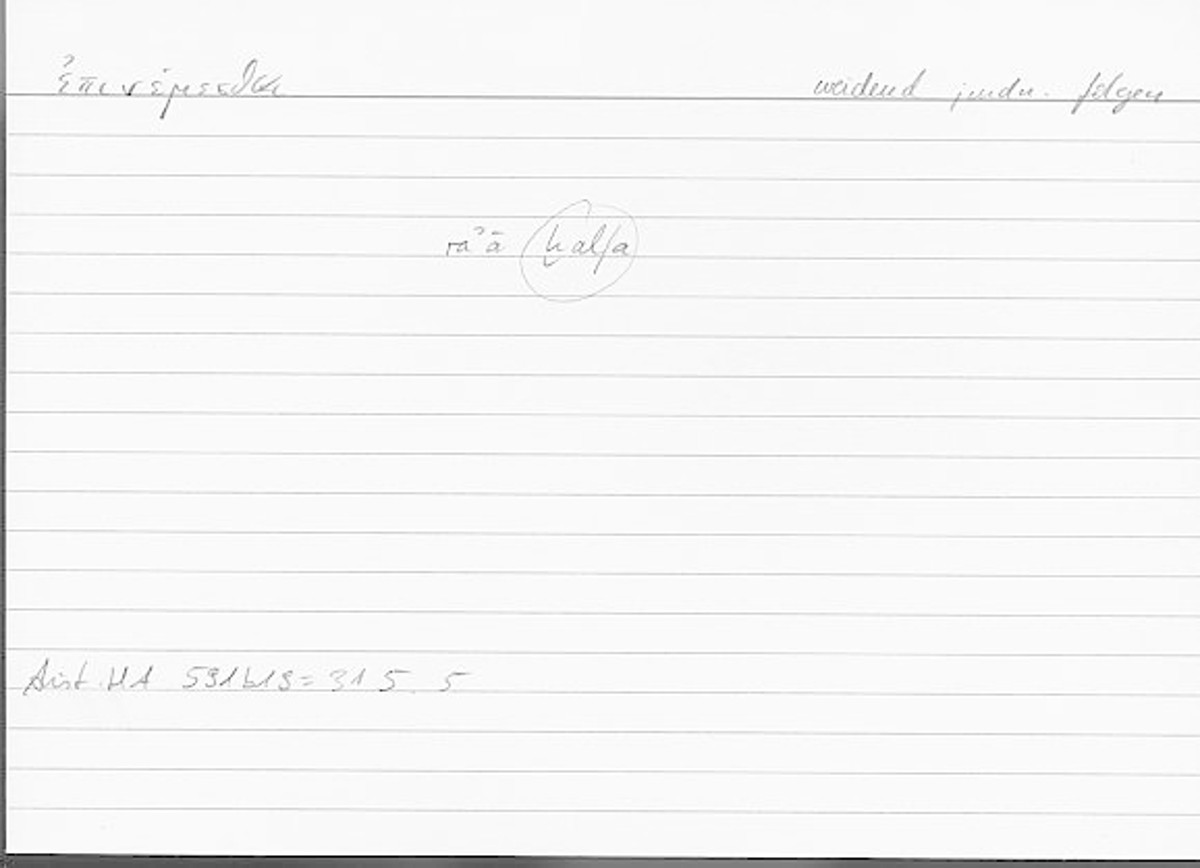 ἐπινέμεσθαι weidend jmdn. folgen
raʿā ḫalfa
Arist. HA 591b19 = 315.5